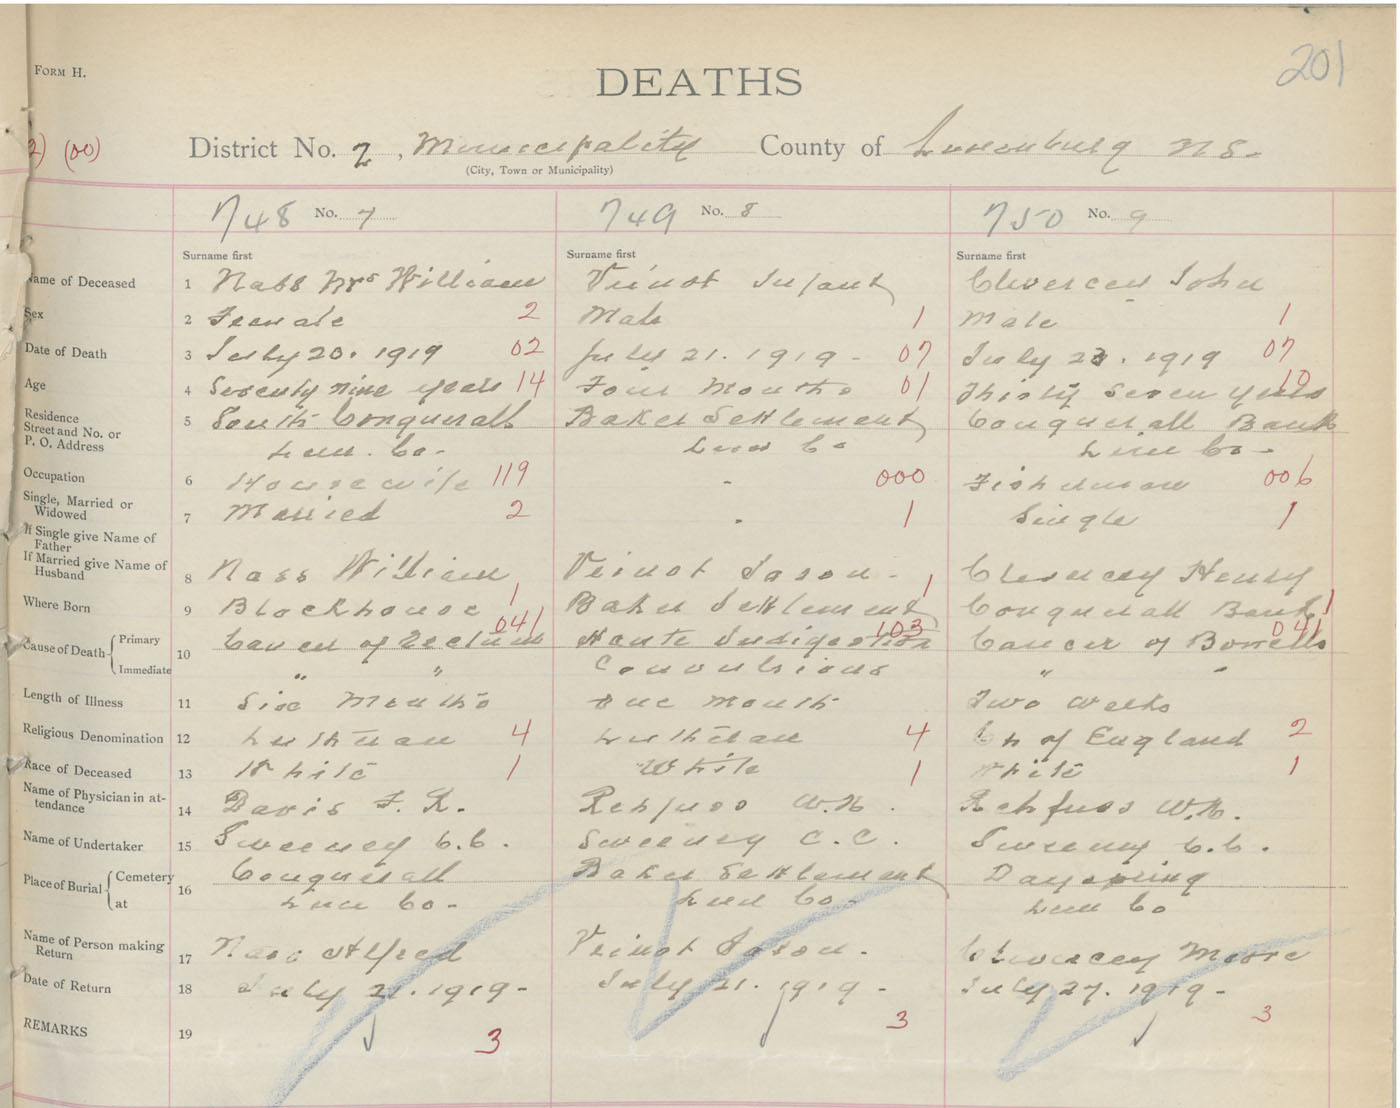 201
FORM H.
DEATHS
2) (00)
District No. 2, Municipality County of Lunenburg N S.
(City, Town or Municipality)
748 No. 7 749 No. 8 750 No. 9
Surname first Surname first Surname first
Name of Deceased 1 Nass Mrs William Veinot Infant John
Sex 2 Female 2 Male 1 Male 1
Date of Death 3 July 20. 1919 02 July 21. 1919 - 07 July 23. 1919 07
Age 4 Seventy nine years 14 Four Months 01 Thirty Seven years 10
Residence
Street and No. or
P. O. Address
5 South Conquerall Baker Settlement Conquerall Bank
Lun. Co. Lun Co Lun Co -
Occupation 6 Housewife 119 - 000 Fisherman 006
Single, Married or
Widowed
7 Married 2 - 1 Single 1
If Single give Name of
Father
If Married give Name of
Husband
8 Nass William Veinot Jason - Henry
Where Born 9 Blockhouse 1 Baker Settlement 1 Conquerall Bank 1
Cause of Death Primary 10 Cancer of Rectum 041 Acute Indigestion 103 Cancer of Bowells 041
Immediate " " Convulsions " "
Length of Illness 11 Six Months One Month Two Weeks
Religious Denomination 12 Lutheran 4 Lutheran 4 Ch of England 2
Race of Deceased 13 White 1 White 1 White 1
Name of Physician in at-
tendance
14 Davis F. R. Rehfuss W.N. Rehfuss W.N.
Name of Undertaker 15 Sweeney C.C. Sweeney C.C. Sweeney C.C.
Place of Burial Cemetery 16 Conquerall Baker Settlement Dayspring
at Lun Co - Lun Co - Lun Co
Name of Person making
Return
17 Nass Alfred Veinot Jason.
Date of Return 18 July 21. 1919 - July 21. 1919 - July 27. 1919 -
REMARKS 19 3 3 3